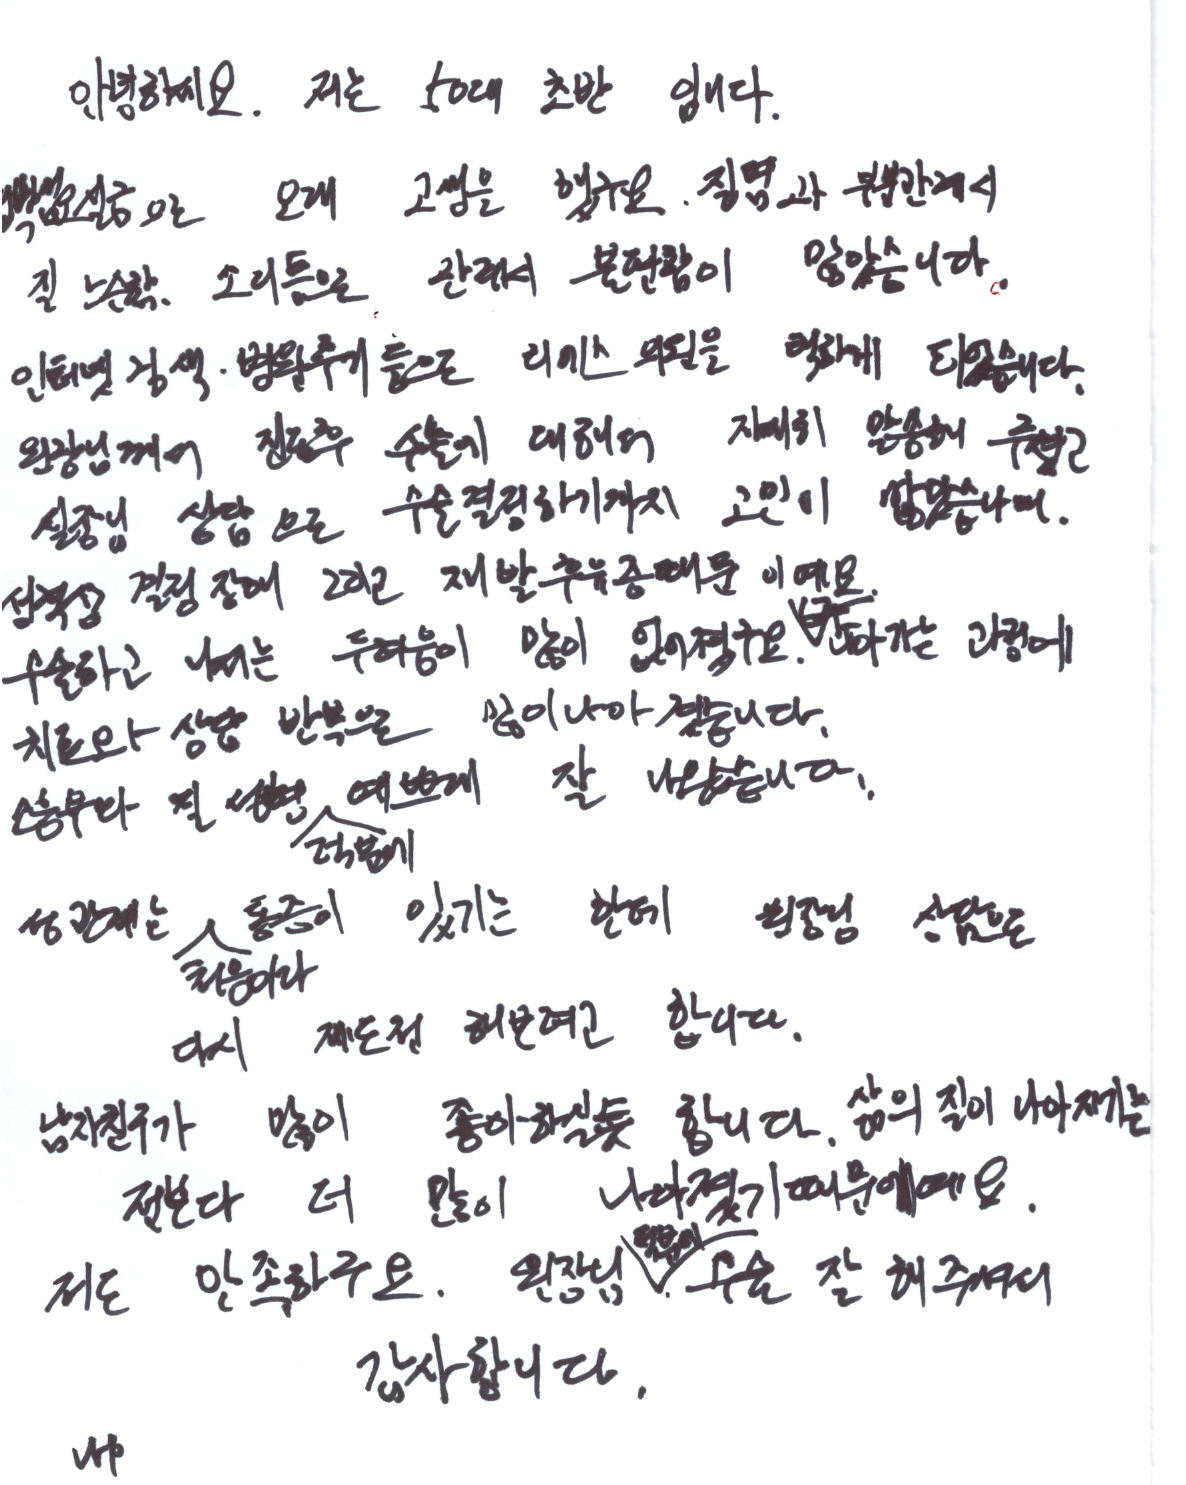 안녕하세요. 저는 50대 초반 입니다.
으로 오래 고생을 했구요. 질염과 부부관계시
질 느슨함. 소리등으로 관계시 불편함이 많았습니다.
인터넷 검색. 병원후기 등으로 리에스 의원을 택하게 되었습니다.
원장님께서 진료후 수술에 대하여 자세히 말씀해 주셨고
실장님 상담 으로 수술결정하기까지 고민이 많았습니다.
성격상 결정 장애 그리고 재발 후유증때문 이예요.
수술하고 나서는 두려움이 많이 없어졌구요. 나아가는 과정에
치료와 상담 반복으로 많이 나아 졌습니다.
소음부와 질 성형 예쁘게 잘 나왔습니다.
덕분에
성관계는 통증이 있기는 한데 원장님 상담으로
처음이라
다시 재도전 해보려고 합니다.
남자친구가 많이 좋아하실듯 합니다. 삶의 질이 나아지기는
전보다 더 많이 나아졌기때문에예요.
저도 만족하구요. 원장님 덕분에 수술 잘 해주셔서
감사합니다.